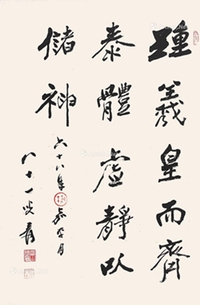 踵羲皇而齊
泰體虛靜以
儲神
六十八年嘉平月
八十一叟爰